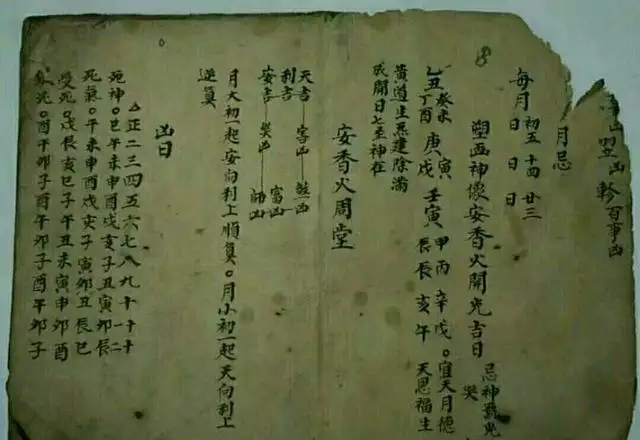 山望山軫百事凶
月忌
每月初五日十四日廿三日
塑画神像安香火開光吉日 忌神號鬼哭
乙丑 癸未 丁酉 庚戌 庚寅 壬寅 甲辰 丙辰 辛亥 戊午 。宜天月德 天恩福生
黄道生炁建除滿
成開日七至神在
安香火周堂
天吉 害凶
利吉
安吉 哭凶 富凶 師凶
月大初一起安向利上順算。月小初一起天向利上
逆算
凶日
△正二三四五六七八九十十一十二
死神。巳午未申酉戌亥子丑寅卯辰
死氣。午未申酉戌亥子寅卯丑辰巳
受死。戌辰亥巳子午丑未寅申卯酉
死。酉午卯子酉午卯子酉午卯子